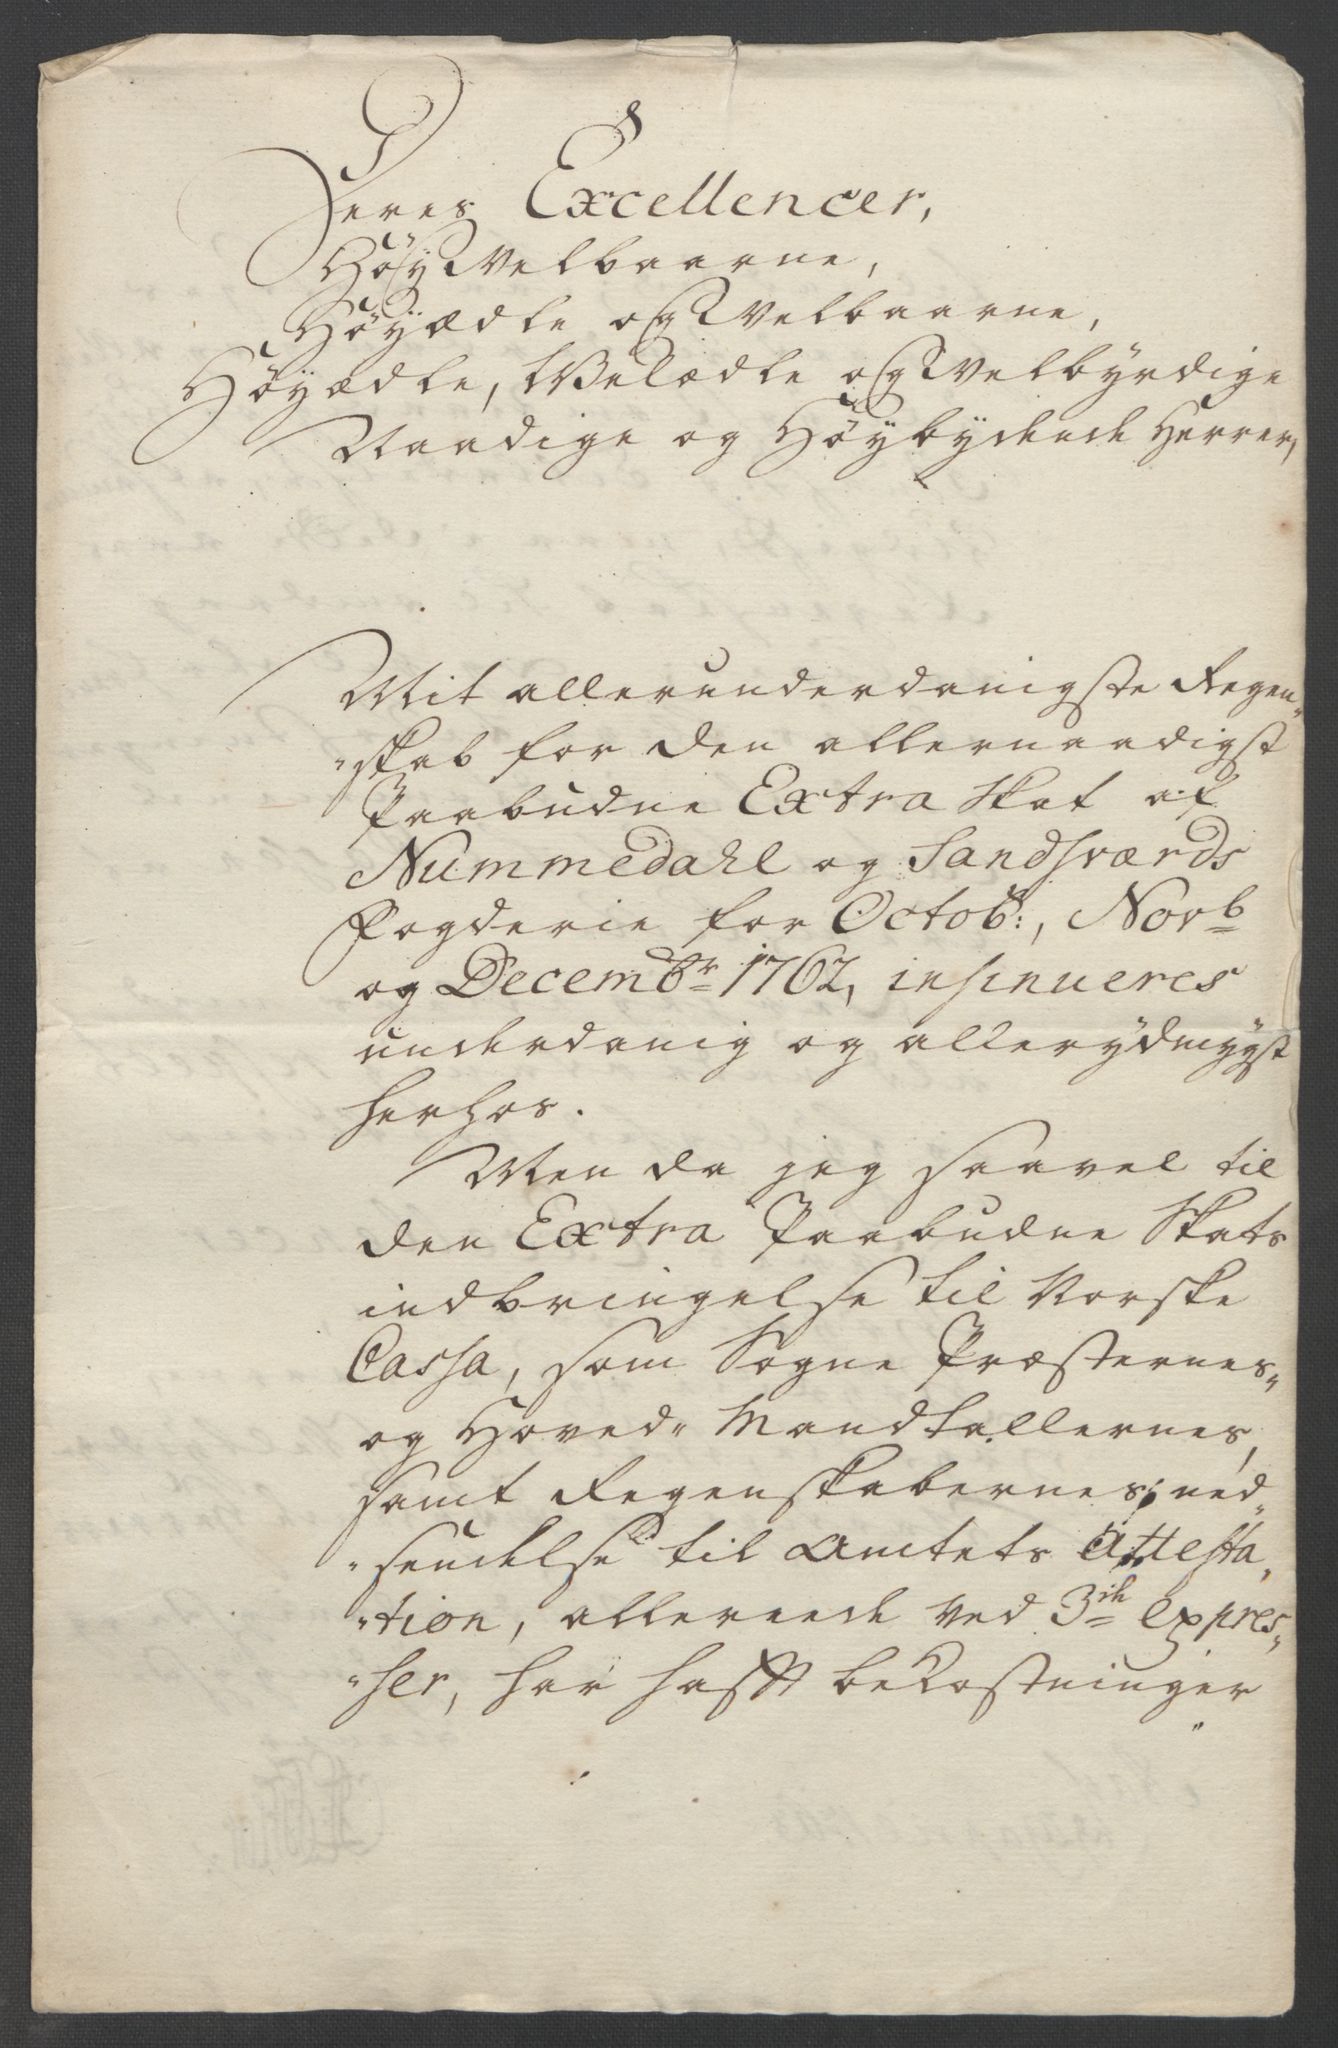 Deres Excellencer,
HöyVelbaarne,
Höyædle og Velbaarne,
Höyædle, Velædle og Velbyrdige
Naadige og Höybydende Herrer,
Mit allerunderdanigste Regen-
-skab for den allernaadigst
Paabudne Extra Skat af
Nummedahl og Sandsværds
Fogderie for Octob:, Novb
og Decembr 1762, insinueres
underdanig og allerydmygst
herhos.
Men da jeg saavel til
den Extra Paabudne Skats
indbringelse til Norske
Cassa, som Sogne Præsternes-
og Hoved- Mandtallernes,
samt Regenskabernes, ned-
-sendelse til Amtets Attesta-
-tion, allereede ved 3de expres-
-ser, har hafft bekostninger